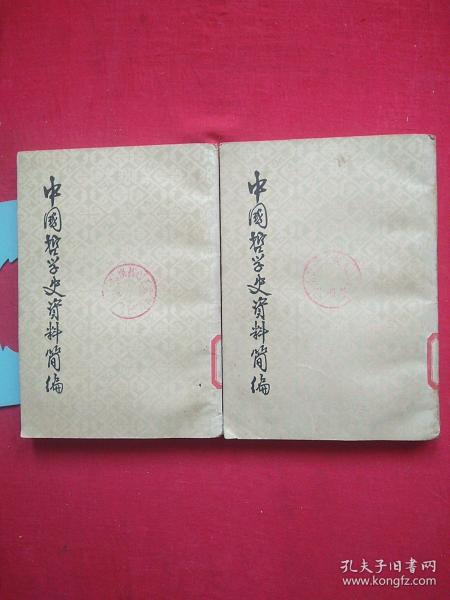 中國哲学史資料简编
中國哲学史資料简编
孔夫子旧书网
www.kongfz.com